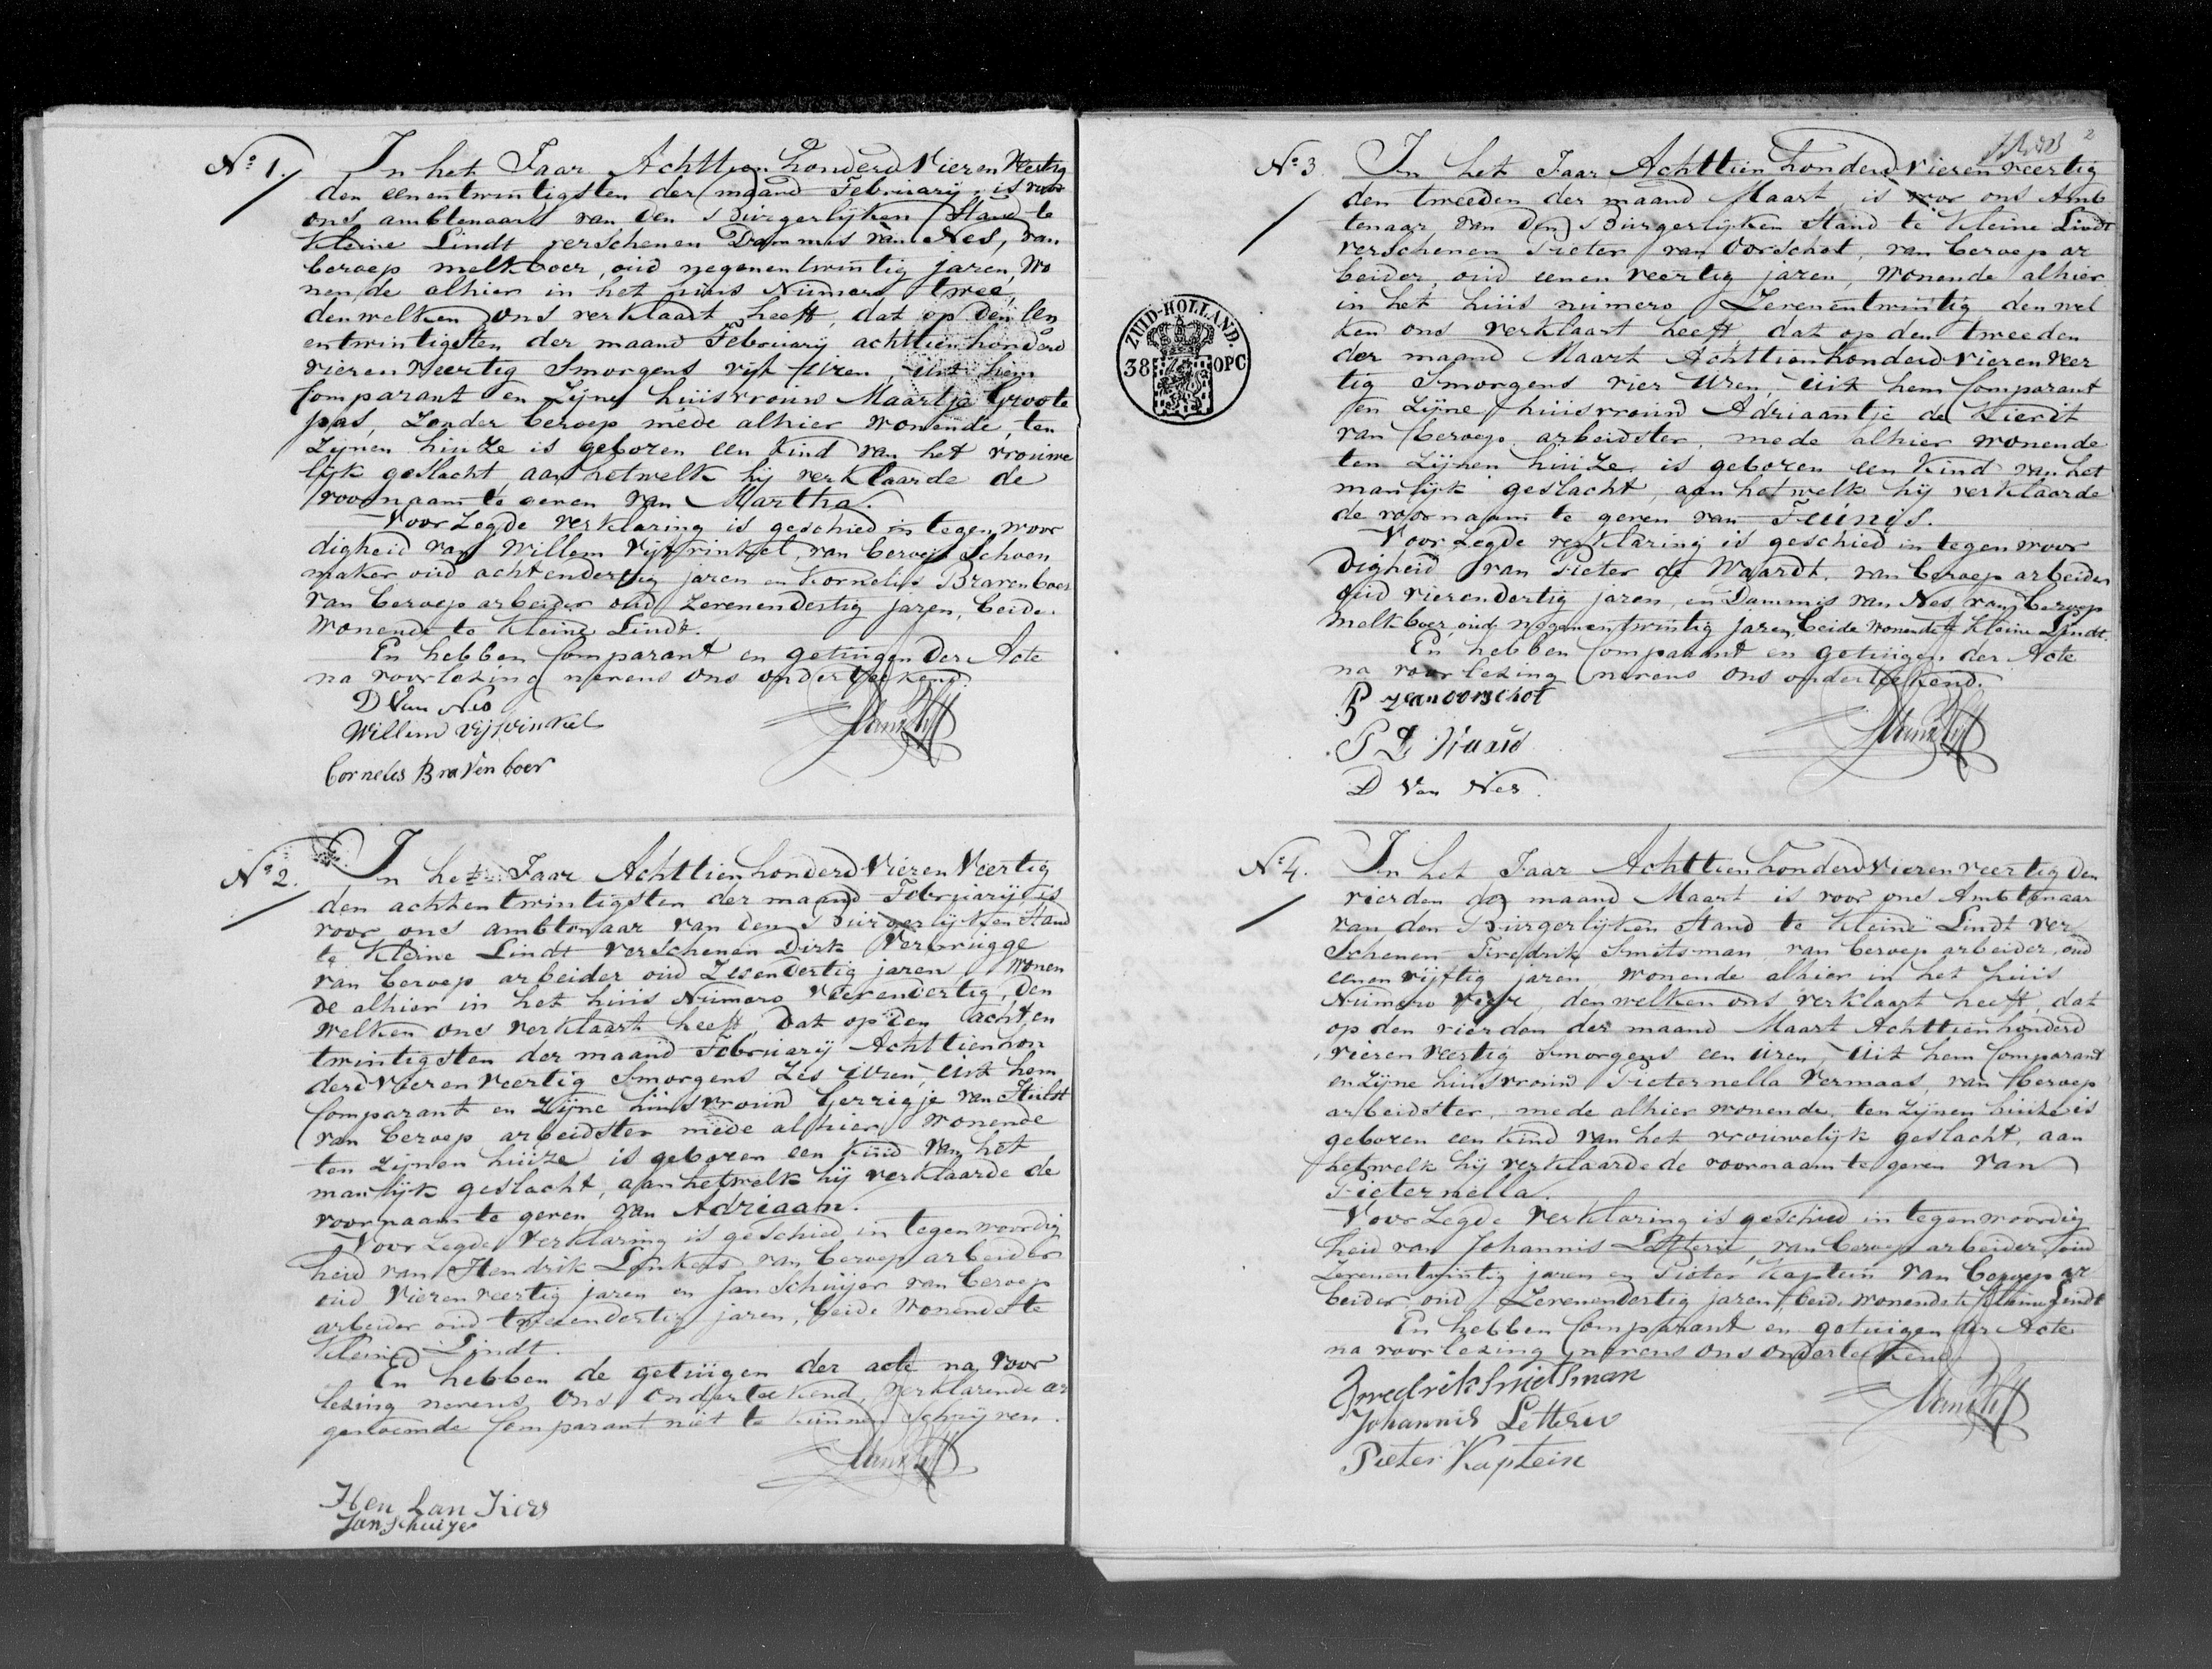 N:o 1.
In het Jaar Achttien honderd Vieren Veertig
den eenentwintigsten der maand Februarij is voor
ons ambtenaar van den Burgerlijken Stand te
Kleine Lindt verschenen Dammis van Nes, van
beroep melkboer, oud negenentwintig jaren, wo
nende alhier in het huis Numero twee,
denwelken ons verklaart heeft, dat op den een
entwintigsten der maand Februarij achttienhonderd
vierenveertig Smorgens vijf uren, uit hem
Comparant en Zijne huisvrouw Maartje Groote
pas, Zonder beroep mede alhier wonende, ten
Zijnen huize is geboren een Kind van het vrouwe
lijk geslacht, aan hetwelk hij verklaarde de
voornaam te geven van Martha.
Voor Zegde verklaring is geschied in tegenwoor
digheid van Willem Vijfvinkel, van beroep Schoen
maker oud achtendertig jaren en Kornelis Bravenboer
van beroep arbeider oud Zevenendertig jaren, beide
wonende te Kleine Lindt.
En hebben Comparant en getuigen der Acte
na voorlezing nevens ons onderteekend.
D Van Nes
Willem Vijfvinkel
Cornelis Bravenboer
N:o 2.
In het Jaar Achttienhonderd Vieren Veertig
den achtentwintigsten der maand Februarij is
voor ons ambtenaar van den Burgerlijken Stand
te Kleine Lindt verschenen Dirk Verbrugge
van beroep arbeider oud Zesendertig jaren, wonen
de alhier in het huis Numero vierendertig, den
welken ons verklaart heeft, dat op den achten
twintigsten der maand Februarij Achttienhon
derd vierenveertig Smorgens Zes uren, uit hem
Comparant en Zijne huisvrouw Gerrigje van
van beroep arbeidster mede alhier wonende
ten Zijnen huize is geboren een Kind van het
manlijk geslacht, aan hetwelk hij verklaarde de
voornaam te geven van Adriaan.
Voor Zegde Verklaring is geschied in tegenwoordig
heid van Hendrik Lankers van beroep arbeider
oud vierenveertig jaren en Jan Schuijer van beroep
arbeider oud tweeendertig jaren, beide wonende te
Kleine Lindt.
En hebben de getuigen der acte na voor
lezing nevens ons onderteekend, verklarende
genoemde Comparant niet te kunnen Schrijven.
Hen Lan Kers
Jan Schuijer
2
N:o 3.
In het Jaar Achttien honderd vieren veertig
den tweeden der maand Maart is voor ons Amb
tenaar van den Burgerlijken Stand te Kleine Lindt
verschenen Pieter van Oorschot, van beroep ar
beider, oud eenen veertig jaren, wonende alhier
in het huis numero Zevenentwintig denwel
ken ons verklaart heeft, dat op den tweeden
der maand Maart Achttienhonderd vierenveer
tig Smorgens vier uren, uit hem Comparant
en Zijne huisvrouw Adriaantje de Kierdt
van beroep arbeidster, mede alhier wonende
ten Zijnen huize is geboren een Kind van het
manlijk geslacht, aan hetwelk hij verklaarde
de voornaam te geven van Teunis.
Voor Zegde verklaring is geschied in tegenwoor
digheid van Pieter de Waardt, van beroep arbeider
oud vierendertig jaren, en Dammis van Nes van beroep
melkboer, oud negenentwintig jaren, beide wonende te Kleine Lindt.
En hebben Comparant en getuigen der Acte
na voorlezing nevens ons onderteekend.
P van oorschot
P D Waard
D Van Nes
ZUID-HOLLAND.
38 OPC
N:o 4.
In het Jaar Achttienhonderd vierenveertig den
vierden der maand Maart is voor ons Ambtenaar
van den Burgerlijken Stand te Kleine Lindt ver
Schenen Fredrik Smitsman, van beroep arbeider, oud
eenenvijftig jaren, wonende alhier in het huis
Numero, denwelken ons verklaart heeft, dat
op den vierden der maand Maart Achttienhonderd
vierenveertig smorgens een uren, uit hem Comparant
en Zijne huisvrouw Pieternella Vermaas, van beroep
arbeidster, mede alhier wonende, ten Zijnen huize is
geboren een Kind van het vrouwelijk geslacht, aan
hetwelk hij verklaarde de voornaam te geven van
Pieternella.
Voor Zegde Verklaring is geschied in tegenwoordig
heid van Johannis Letterie, van beroep arbeider oud
Zevenentwintig jaren en Pieter Kaptein van beroep ar
beider oud Zevenendertig jaren beide wonende te Kleine Lindt
En hebben Comparant en getuigen der Acte
na voorlezing nevens ons onderteekend
Fredrik Smitsman
Johannis Letterie
Pieter Kaptein